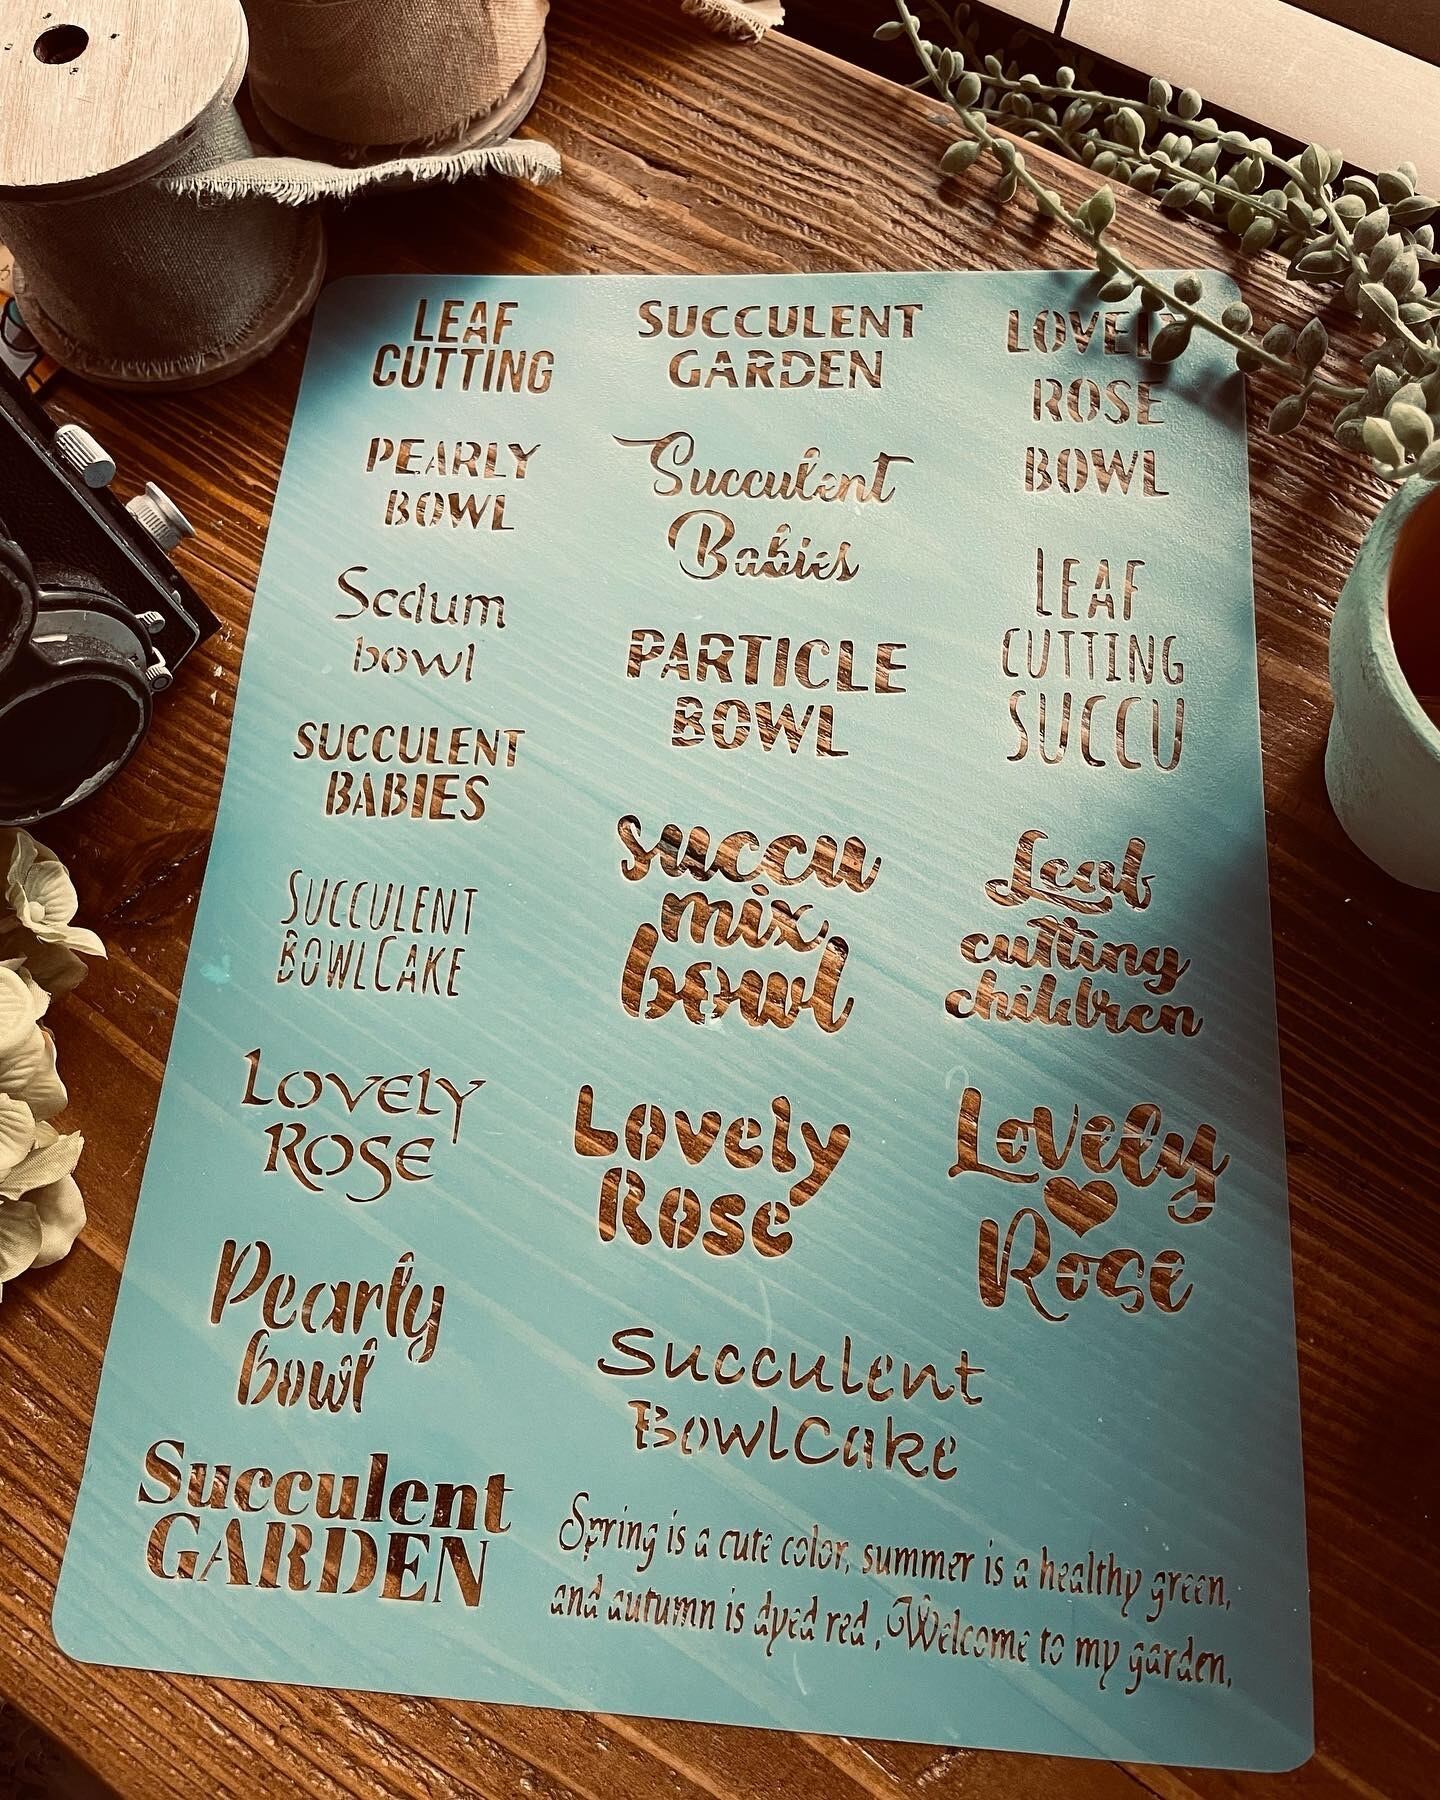 LEAF
CUTTING
SUCCULENT
GARDEN
LOVELY
ROSE
BOWL
PEARLY
BOWL
Succulent
Babies
Sedum
bowl
PARTICLE
BOWL
LEAF
CUTTING
SUCCU
SUCCULENT
BABIES
succu
mix
bowl
Leaf
cutting
children
SUCCULENT
BOWLCAKE
LOVELY
ROSE
Lovely
Rose
Lovely
Rose
Pearly
bowl
Succulent
BowlCake
Succulent
GARDEN
Spring is a cute color, summer is a healthy green,
and autumn is dyed red , Welcome to my garden,